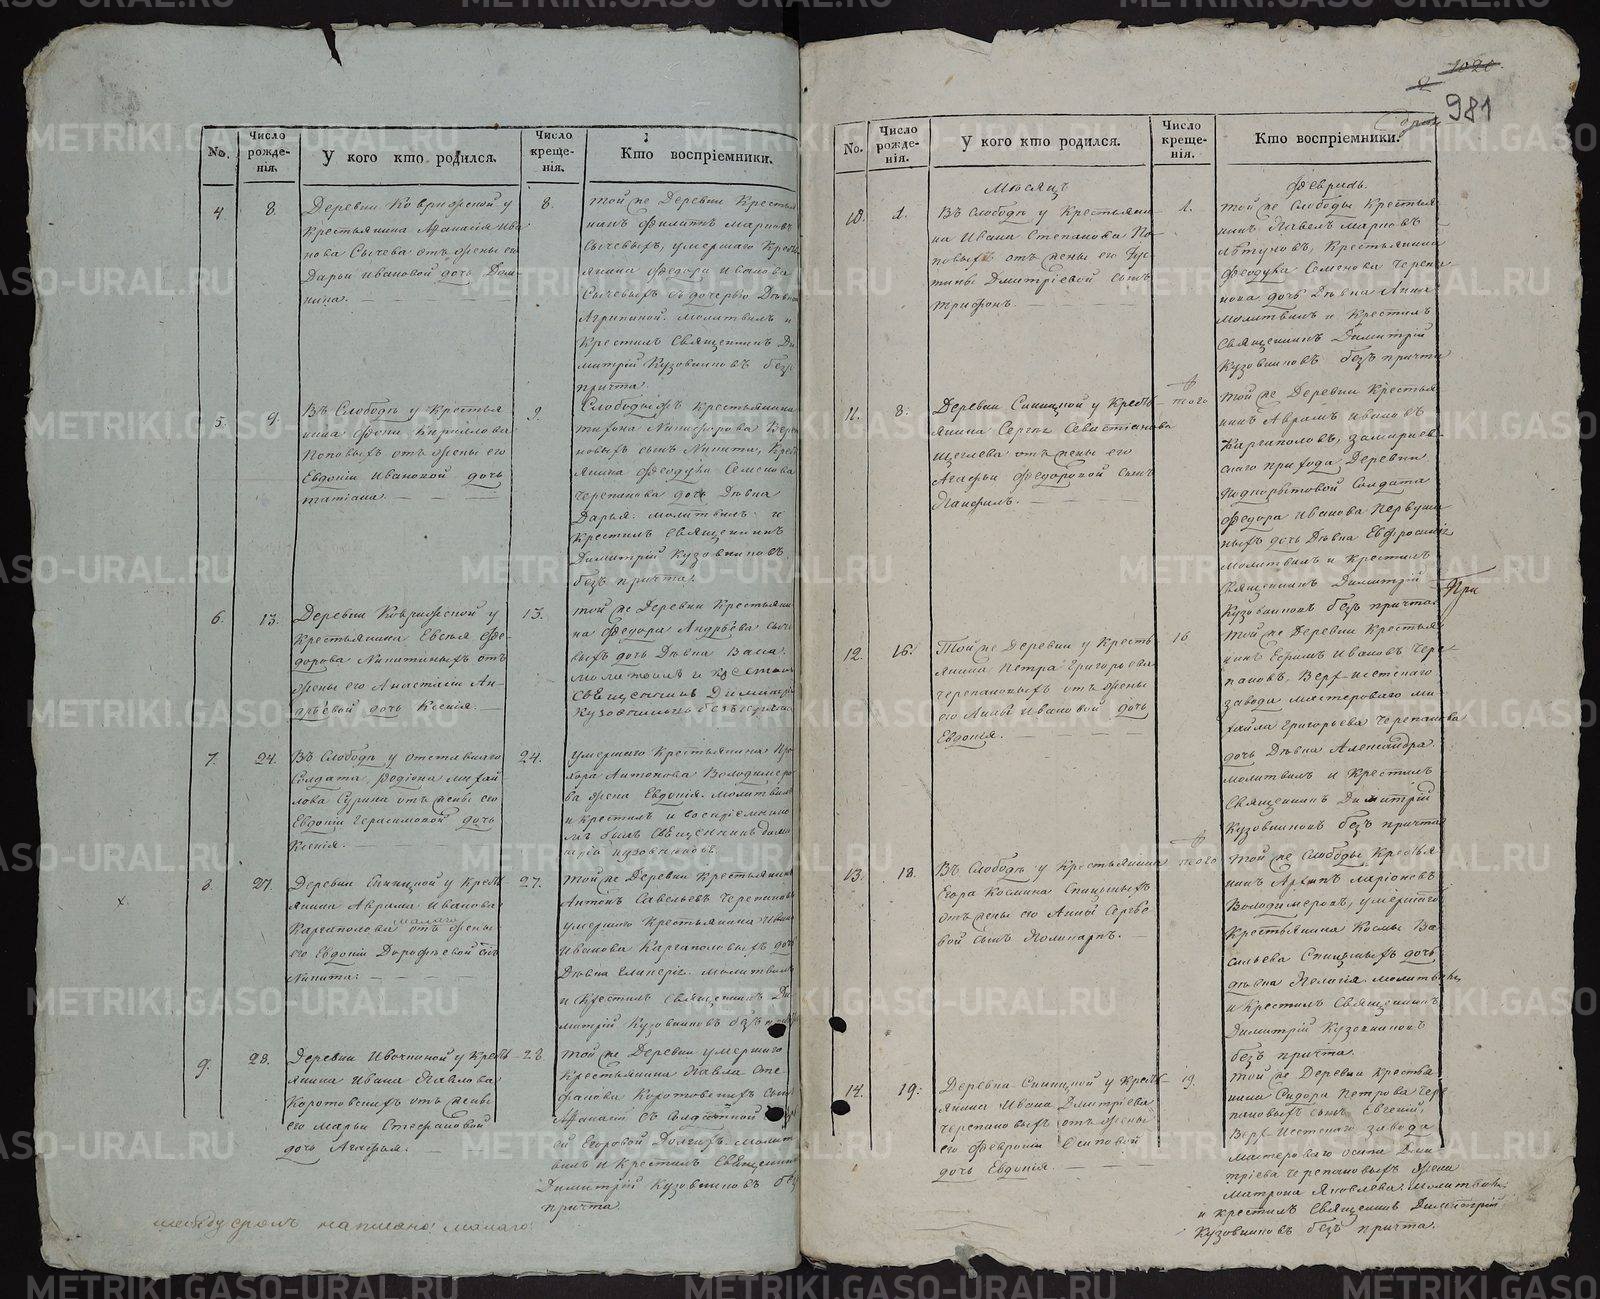 No.
Число рожде-нія.
У кого кто родился.
Число креще-нія.
Кто воспріемники.
4
8.
Деревни Коврижской у
крестьянина Афанасія Ива
нова Сычева отъ жены его
Дарьи Ивановой дочь Дом-
нина.
8.
той же Деревни Крестья
нинъ Филиппъ Марковъ
Сычевыхъ, умершаго Крест
янина Федора Иванова
Сычевыхъ дочерью Дѣвка
Агрипиной. Молитвилъ и
Крестилъ Священникъ Ди
митрій Кузовниковъ безъ
причта.
5.
9.
Въ Слободѣ у Крестья
нина Фоки Кирилова
Поповыхъ отъ жены его
Евдокіи Ивановой дочь
татіана.
9.
Крестьянина
Никифорова
сынъ Никита, Крест
янина Федула Семенова
Черепанова дочь Дѣвка
Дарья. Молитвилъ и
Крестилъ Священникъ
Димитрій Кузовниковъ
безъ причта.
6.
13.
Деревни Коврижской у
крестьянина Евсѣя Фе-
дорова Никитиныхъ отъ
жены его Анастасіи Ан-
дрѣевой дочь Ксенія.
13.
той же Деревни Крестьяни
на Федора Андрѣева Сыче
выхъ дочь Дѣвка Васса.
молитвилъ и крестилъ
Священникъ Димитрій
Кузовниковъ безъ причта
7.
24.
Въ Слободѣ у отставнаго
Солдата Родіона Михай
лова Сурина отъ жены его
Евдокіи Герасимовой дочь
Ксенія.
24.
умершаго Крестьянина
Антонова Володимеро
ва жена Евдокія. Молитвилъ
и крестилъ и воспріемнико
мъ былъ Священникъ Дими
трій Кузовниковъ.
8.
27.
Деревни Синицкой у Крест
янина Аврама Иванова
Каргаполова малаго отъ жены
его Евдокіи Дорофѣевой сынъ
Никита.
27.
той же Деревни Крестьянинъ
Антонъ Савельевъ Черепановъ
умершаго Крестьянина Ивана
Иванова Каргаполовыхъ дочь
Дѣвка Гликерія. Молитвилъ
и Крестилъ Священникъ Ди
митрій Кузовниковъ безъ
9.
28.
Деревни Ивочкиной у Крест
янина Ивана Павлова
Коротовскихъ отъ жены
его Марьи Стефановой
дочь Агафья.
28
той же Деревни умершаго
Крестьянина Павла Сте
фанова Коротовскихъ сынъ
Афанасій съ солдатской
Егоровой Долгихъ. Молит
вилъ и Крестилъ Священникъ
Димитрій Кузовниковъ безъ
причта
между срокъ написано: малаго.
2
1020.
981
No.
Число рожде-нія.
У кого кто родился.
Число креще-нія.
Кто воспріемники.
Мѣсяцъ
Февраль.
10.
1.
Въ Слободѣ у Крестьяни
на Ивана Степанова По
повыхъ отъ жены его Іус
тины Дмитріевой сынъ
Трифонъ.
1.
той же Слободы Крестья
нинъ Павелъ Марковъ
Автуловъ, Крестьянина
Федула Семенова Черепа
нова дочь Дѣвка Анна
Молитвилъ и Крестилъ
Священникъ Димитрій
Кузовниковъ безъ причта
11.
8.
Деревни Синицкой у Крест
янина Сергѣя Севастіанова
Щеглева отъ жены его
Агафьи Федоровой сынъ
Панфилъ.
того
той же Деревни Крестья
нинъ Аврамъ Ивановъ
Каргаполовъ, Замараев-
скаго прихода Деревни
Подкорытовой Солдата
Федора Иванова Первуши
ныхъ дочь Дѣвка Евфросинія
Молитвилъ и Крестилъ
Священникъ Димитрій
Кузовниковъ безъ причта.
При
12.
16.
Той же Деревни у Кресть
янина Петра Григорьева
Черепановыхъ отъ жены
его Анны Ивановой дочь
Евдокія.
16
той же Деревни Крестья
нинъ Ефимъ Ивановъ Чере-
пановъ, Верх-Исетскаго
завода мастероваго Ми
хайла Григорьева Черепанова
дочь Дѣвка Александра.
Молитвилъ и Крестилъ
Священникъ Димитрій
Кузовниковъ безъ причта
13.
18.
Въ Слободѣ у Крестьянина
Егора Космина Спицыныхъ
отъ жены его Анны Сергѣе
вой сынъ Поликарпъ.
того
той же Слободы Крестья
нинъ Архипъ Ларіоновъ
Володимеровъ, умершаго
Крестьянина Космы Ва
сильева Спицыныхъ дочь
Дѣвка Пелагія. Молитвилъ
и Крестилъ Священникъ
Димитрій Кузовниковъ
безъ причта.
14.
19.
Деревни Синицкой у Крест
янина Ивана Дмитріева
Черепановыхъ отъ жены
его Февроніи Осиповой
дочь Евдокія.
19.
той же Деревни Крестья
нина Сидора Петрова Чере
пановыхъ сынъ Евгеній,
Верх-Исетскаго завода
мастероваго Осипа Дми
тріева Черепановыхъ жена
Матрона Яковлева. Молитвилъ
и крестилъ Священникъ Димитрій
Кузовниковъ безъ причта.
METRIKI.GASO-URAL.RU